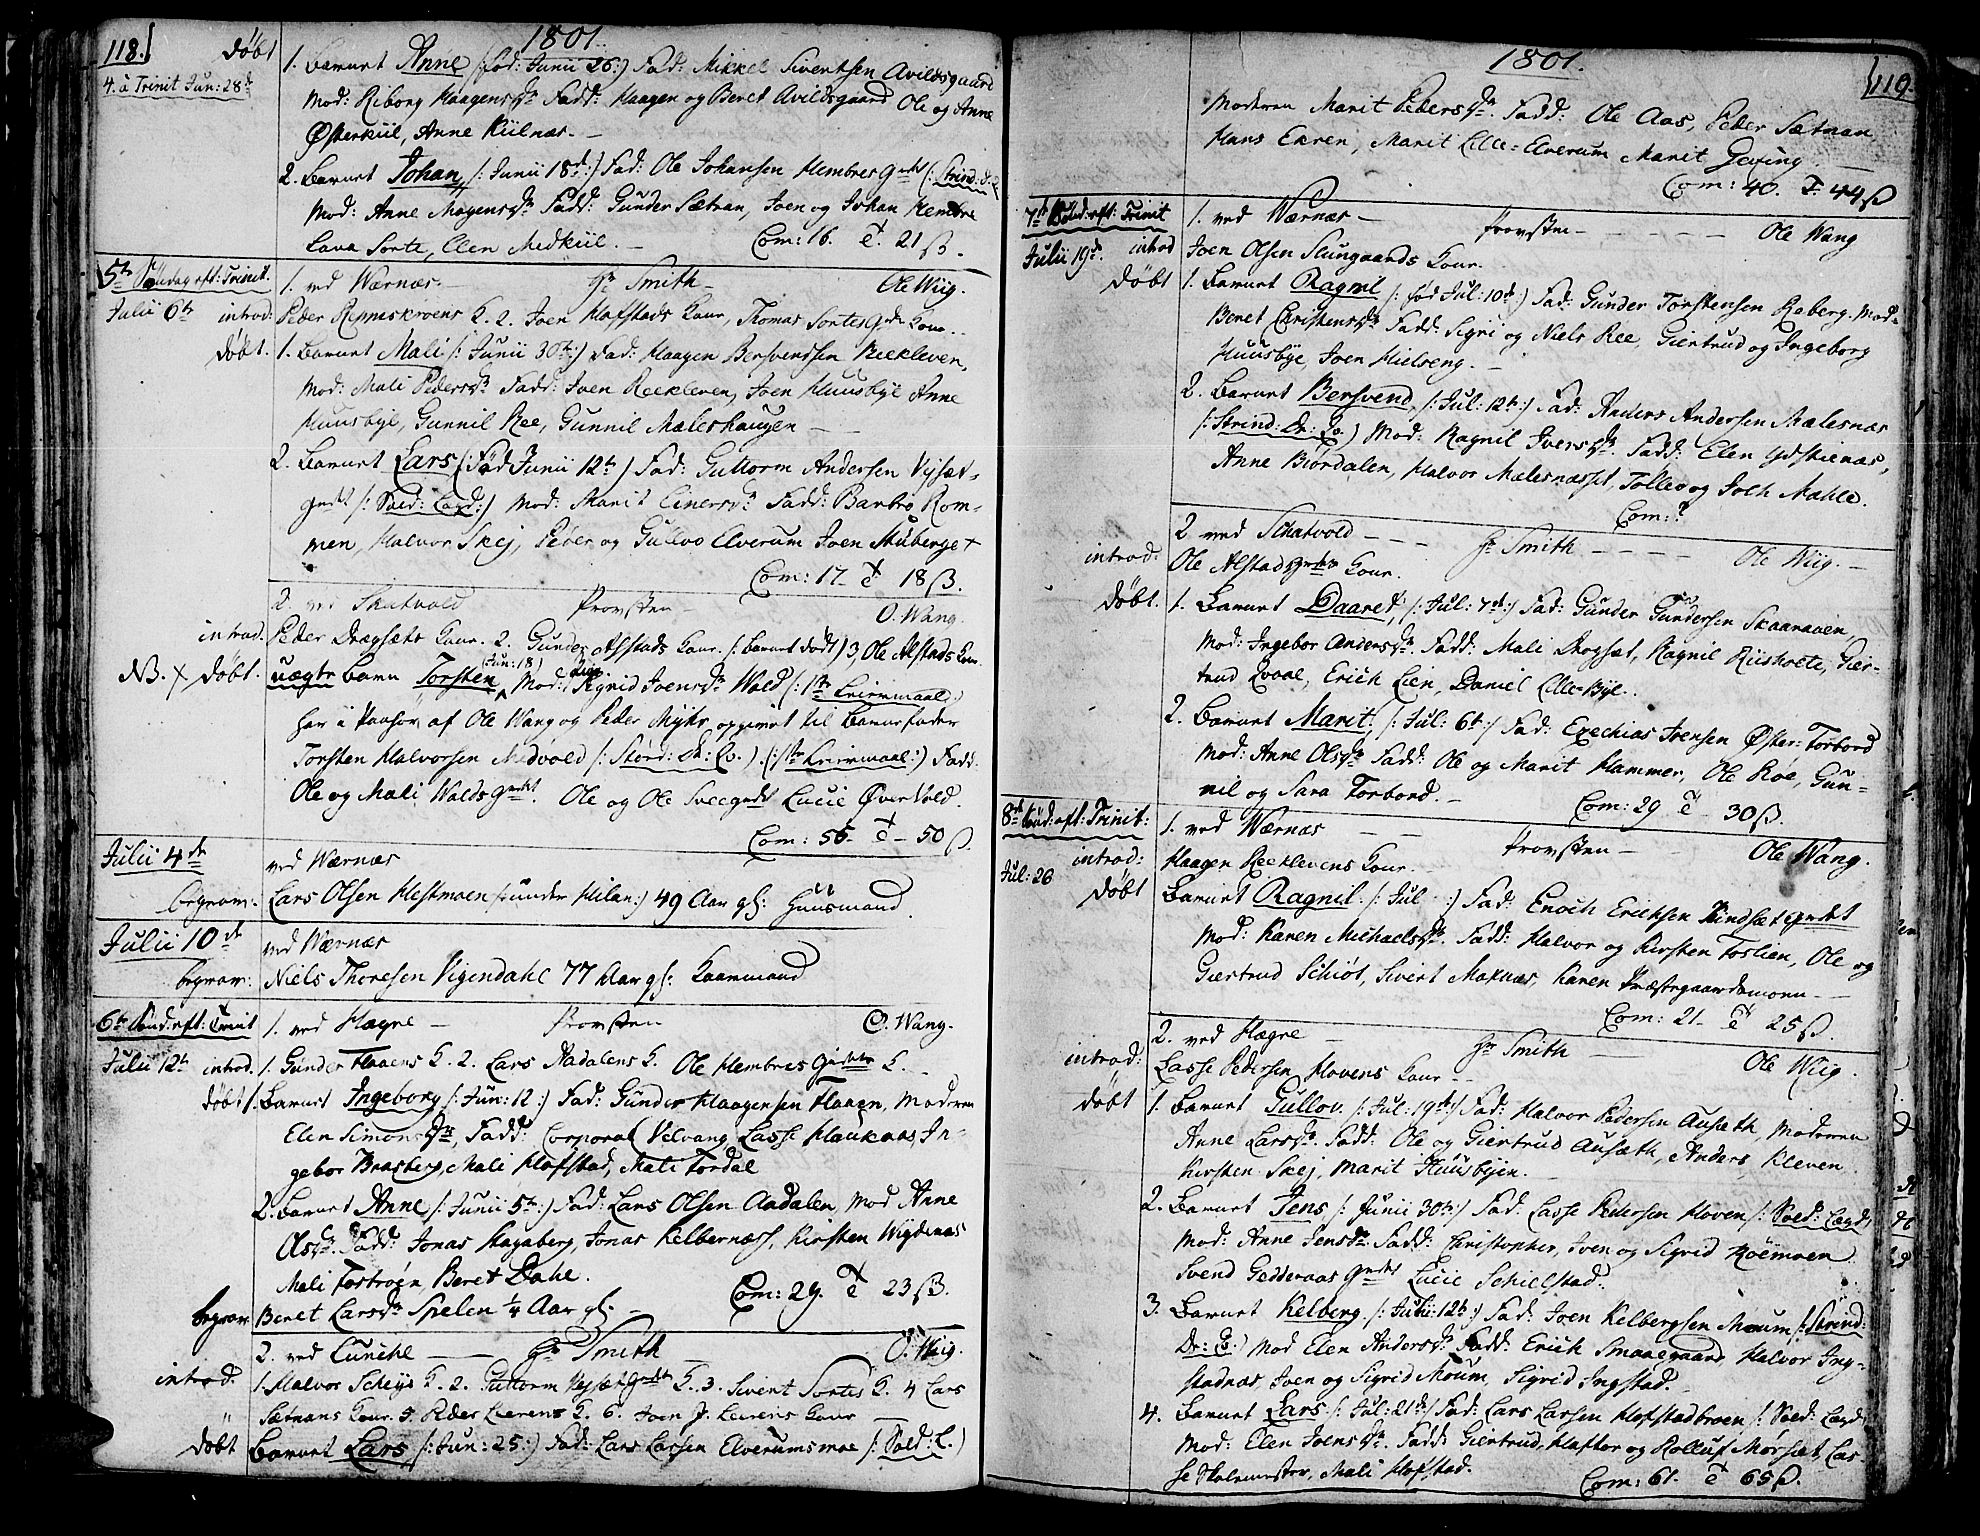 118.
1801.
Døbt
4. à Trinit Jun: 28d
1. Barnet Anne /: fød: Junii 26:/ Fad: Mikkel Sivertsen Avildsgaard
Mod: Riborg Haagensdr Fadd: Haagen og Beret Avildsgaard Ole og Anne
Østerkiil, Anne Kiilnæs. -
2. Barnet Johan /: Junii 18d:/ Fad: Ole Johansen Hembregdet (: Strind: D:
Mod: Anne Mogensdr Fadd: Gunder Sætran, Joen og Johan Hembre
Lava Sorte, Elen Medkiil. - Com: 16. T. 21 ß.
5te Søndag eft: Trinit.
1. ved Wærnæs - Hr Smith - Ole Wiig.
Julii 6te introd: Peder Renneskroens K. 2. Joen Hofstads Konr, Thomas Sortes Kone.
Døbt. 1. Barnet Mali /: Junii 30te:/ Fad: Haagen Bersvendsen Reekleven,
Mod: Mali Pedersdr Fadd: Joen Reekleven, Joen Huusbye Anne
Huusbye, Gunnil Ree, Gunnil Mæleshaugen -
2. Barnet Lars /: Fød Junii 12te:/ Fad: Guttorm Andersen Vijsæt-
gdet /: Sold: Lægd:/ Mod: Marit Einersdr Fadd: Barbro Rom-
men, Halvor Skej, Peder og Gullvo Elverum Joen Stuberge +
Com: 17 - T 18 ß.
2. ved Skatvold Provsten - O. Wang
introd. Peder Dragsæts Konr. 2. Gunder Alstads Konr. /: barnet dødt) 3, Ole Alstads Kone.
NB. X Døbt. uægte Barn Torsten (Jun: 18) Mod: Pige Sigrid Joensdr Wold /: 1te Leiermaal:)
har i Paahør af Ole Wang og Peder Myhr opgivet til Barnefader
Torsten Halvorsen Midvold /: Størd: Dr: Co.) (: 1te Leiermaal:) Fadd:
Ole og Mali Wolds gdet. Ole og Ole Svee gdet Lucie Øver Vold.
Com: 56 - T - 50 ß.
Julii 4de ved Wærnæs
begrav: Lars Olsen Hestmoen /: under Milan:) 49 Aar gl: Huusmand.
Julii 10de ved Wærnæs
begrav: Niels Thoresen Vigendahl 77 Aar gl: Kaarmand
6te Sønd: eft: Trinit 1. ved Hægre - Provsten O. Wang.
Julii 12te introd. 1. Gunder Haaens K. 2. Lars Aadalens K. Ole Hembres gdets K.
Døbt 1. Barnet Ingeborg /: Jun: 12:/ Fad: Gunder Haagensen Haaen, Moderen
Elen Simonsdr, Fadd: Corporal Velvang, Lasse Haukaas, In-
gebor Braaberg, Mali Hofstad, Mali Fordal
2. Barnet Anne /: Junii 5te:/ Fad: Lars Olsen Aadalen, Mod Anne
Olsdr. Fadd: Jonas Hagaberg, Jonas Kelbernæss, Kirsten Wigdenæs
Mali Fostrøen Beret Dahl. Com: 29. T 23 ß.
begrav: Beret Larsdr Spelen 1/4 Aar gl. -
2. ved Lunche - Hr Smith - O. Wiig.
introd. 1. Halvor Scheys K. 2. Guttorm Vijsæt gdets K. 3. Sivert Sortes K. 4 Lars
Sætrans Konr. 5. Peder Leerens K. 6. Joen J. Leirens Konr
Døbt Barnet Lars /: Jun: 25:/ Fad: Lars Larsen Elverumsmoe /: Sold: L.)
1801.
119.
Moderen Marit Pedersdr. Fadd: Ole Aas, Peder Sætran
Hans Ekren, Marit Lille-Elverum Marit Geving.
Com: 40. T. 44 ß
7de Sønd: eft: Trinit 1. ved Wærnæs - Provsten - Ole Wang
Julii 19de. introd Joen Olsen Slungaards Konr.
Døbt 1. Barnet Ragnil /: fød Jul: 10de:/ Fad: Gunder Torstensen Raberg. Mod:
Beret Christensdr Fadd: Sigri og Niels Ree, Giertrud og Ingeborg
Huusbye, Joen Mielseng. -
2. Barnet Bersvend /: Jul: 12te:/ Fad: Anders Andersen Mælesnæs
/: Strind: Dr: Co.) Mod: Ragnil Iversdr. Fadd: Elen Ydstienæs,
Anne Biørdalen, Halvor Mælesnæsset, Tollev og Joch Mæhle.
Com: ?
2 ved Schatvold - Hr Smith - Ole Wiig. -
introd: Ole Alstadsgdets Konr.
Døbt. 1. Barnet Daaret, /: Jul: 7de:/ Fad: Gunder Gundersen Skaanaven,
Mod: Ingebor Andersdr. Fadd: Mali Drogset, Ragnil Riishoete, Gier-
trud Qvaal, Erich Lien, Daniel Lille-Bye.
2. Barnet Marit, /: Jul: 6te:/ Fad: Ezechias Joensen Øster-Forbord
Mod: Anne Olsdr Fadd: Ole og Marit Hammer, Ole Røe, Gun-
nil og Sara Forbord. - Com: 29 T 30 ß.
8de Sønd: eft: Trinit: 1. ved Wærnæs - Provsten - Ole Wang.
Jul: 26 introd: Haagen Reeklevens Konr.
Døbt Barnet Ragnil. /: Jul :/ Fad: Enoch Erichsen Kindsæt gdet
Mod: Karen Michaelsdr. Fadd: Halvor og Kirsten Foslien, Ole og
Giertrud Schiøt, Sivert Moknæs, Karen Præstegaardsmoen -
Com: 21 - T 25 ß.
2. ved Hægre - Hr Smith - Ole Wiig.
introd: Lasse Pedersen Hovens Konr -
Døbt 1. Barnet Gullov. /: Jul: 19de:/ Fad: Halvor Pedersen Ausæth, Moderen
Anne Larsdr. Fadd: Ole og Giertrud Ausæth, Anders Kleven
Kirsten Skej, Marit Huusbyen.
2. Barnet Jens /: Junii 30te:/ Fad: Lasse Pedersen Hoven /: Sold: Lægd:
Mod: Anne Jensdr. Fadd: Christopher, Joen og Sigrid Røemoen
Svend Gedderaas gdet Lucie Schielstad.
3. Barnet Kelberg /: Julii: 12te:/ Fad: Joen Kelbergsen Moum /: Strind:
Dr: C:) Mod Elen Andersdr Fadd: Erich Smaagaard Halvor Ing-
stadnæs, Joen og Sigrid Moum, Sigrid Ingstad.
4. Barnet Lars /: Jul: 21de:/ Fad: Lars Larsen Hofstadkroen /: Sold: Lægd:
Mod: Elen Joensdr. Fadd: Giertrud, Haftor og Rolluf Mørsæt, Las-
se Skolemester, Mali Hofstad. Com: 61. T 65 ß.